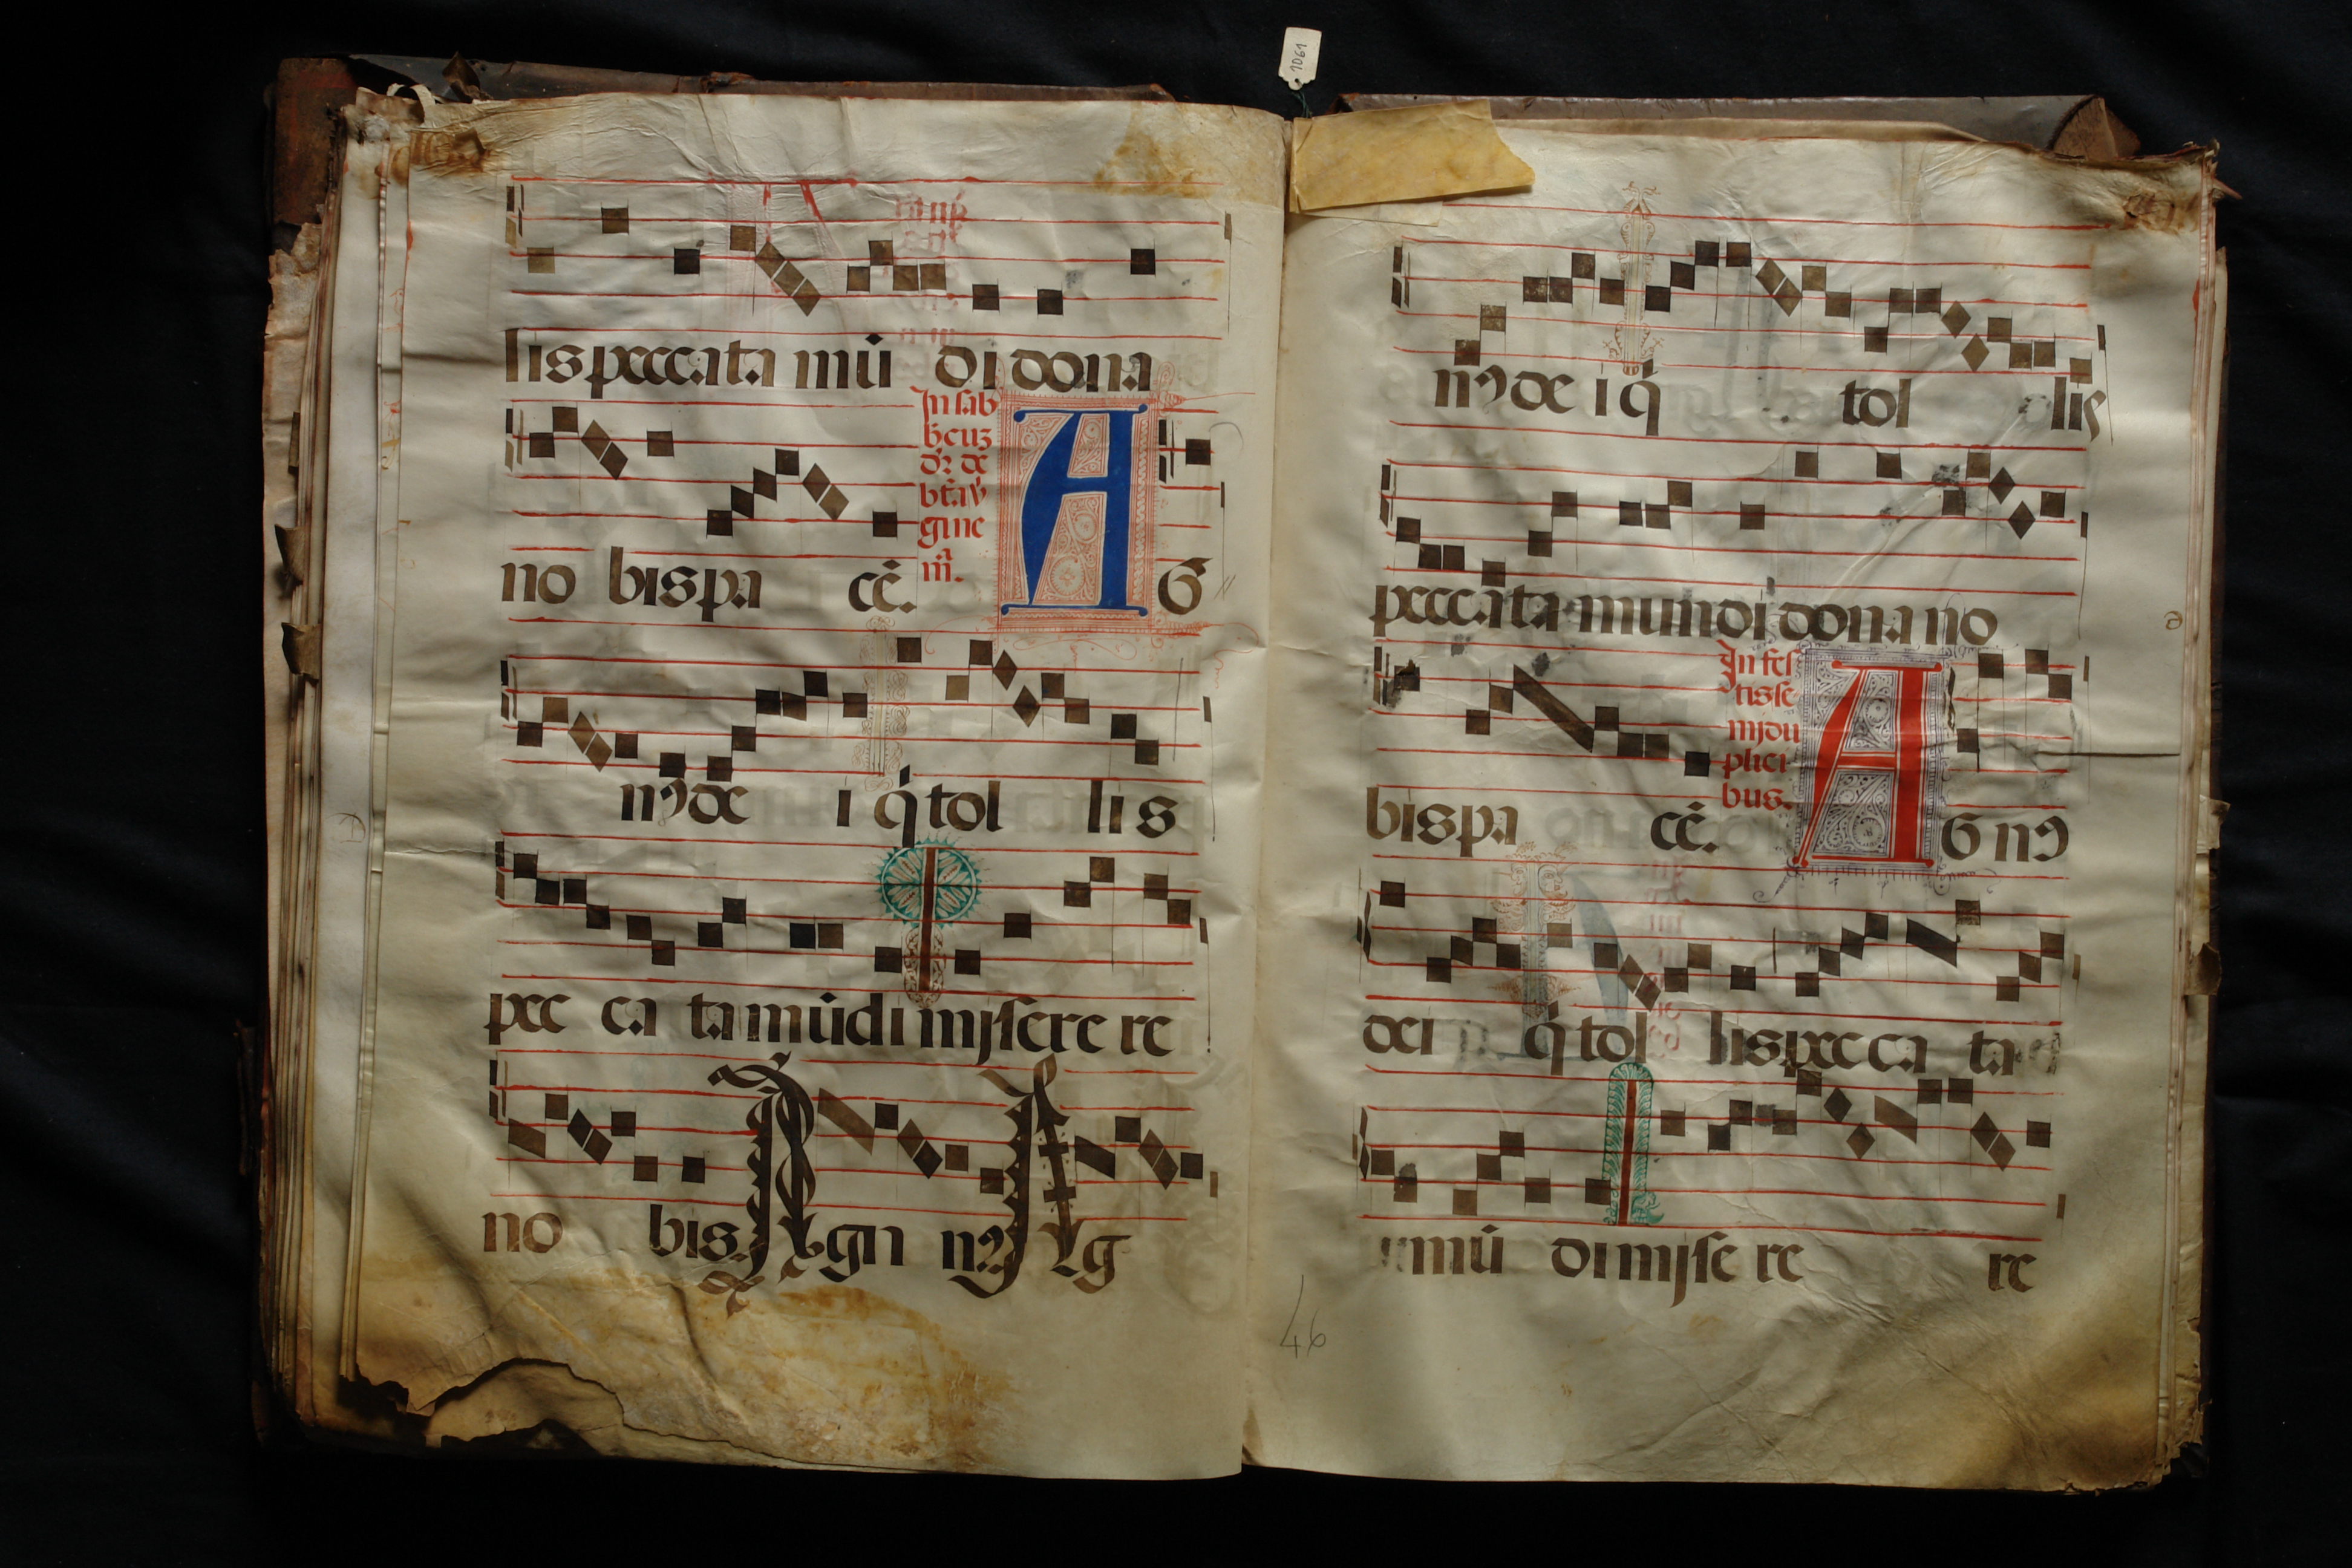 1061
lis peccata mū di dona
In sab
b̄ euz
dr̄ de
bt̄a v̓
gine
m̄.
no bis pa cē. A G
nꝰ de i q̓ tol li s
pec ca ta mūdi misere re
no bis. A gn nꝰ A g
nꝰ de i q̓ tol lis
peccata mundi dona no
In fes
tis se
mi du
plici
bus.
bis pa cē. A G nꝰ
dei q̓ tol lis pec ca ta
mū di mise re re
46